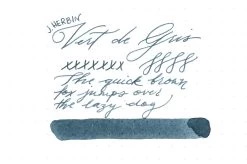 J. HERBIN
Vert de Gris
xxxxxxx
The quick brown
fox jumps over
the lazy dog